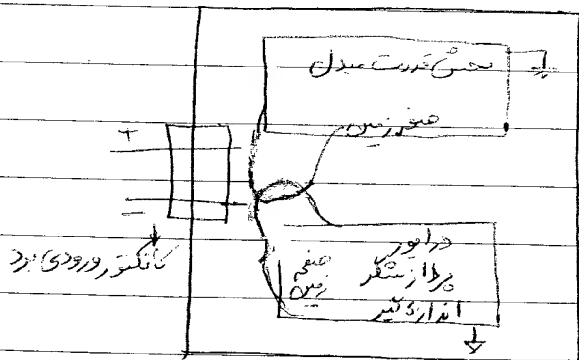 بخش قدرت مبدل
صفر زمین
+
-
کانکتور ورودی برد
درایور
پردازشگر
اندازه گیر
صفحه
زمین